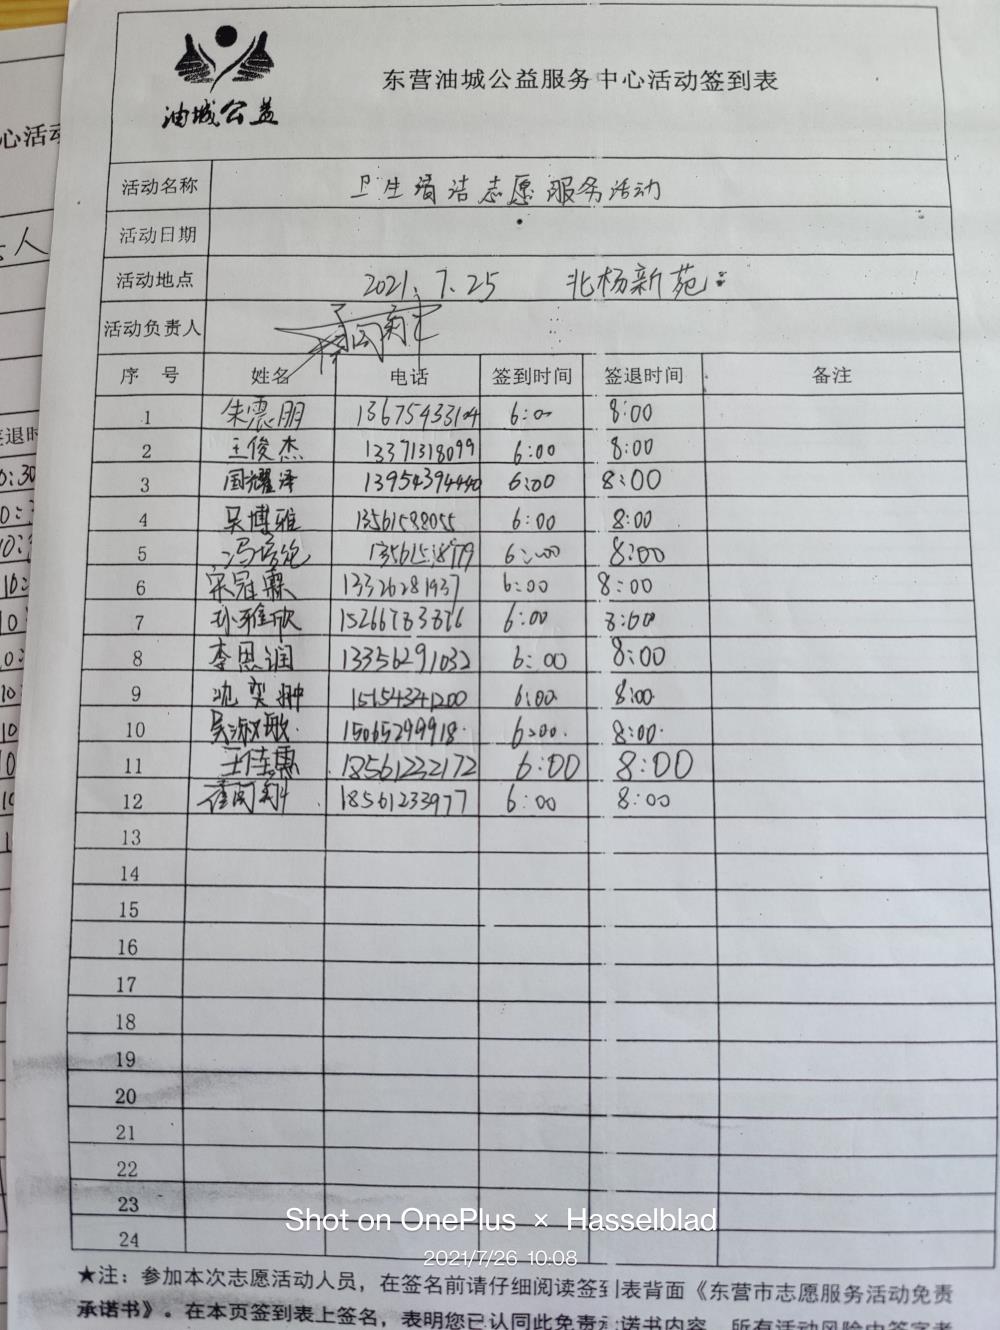 心活动
人
签退时
油城公益
东营油城公益服务中心活动签到表
活动名称 卫生清洁志愿服务活动
活动日期
活动地点 2021.7.25 北杨新苑
活动负责人
序号 姓名 电话 签到时间 签退时间 备注
1 朱震朋 13675433104 6:00 8:00
2 王俊杰 13371318099 6:00 8:00
3 国耀泽 13954394440 6:00 8:00
4 吴博雅 13561588055 6:00 8:00
5 6:00 8:00
6 宋冠霖 13326281937 6:00 8:00
7 孙雅欣 15266783876 6:00 8:00
8 李思润 13356291032 6:00 8:00
9 15154341200 6:00 8:00
10 吴淑敏 15065299918 6:00 8:00
11 王佳惠 18561232172 6:00 8:00
12 18561233977 6:00 8:00
13
14
15
16
17
18
19
20
21
22
23
24
★注：参加本次志愿活动人员，在签名前请仔细阅读签到表背面《东营市志愿服务活动免责
承诺书》。在本页签到表上签名，表明您已认同此免责承诺书内容，所有活动风险由签字者
Shot on OnePlus × Hasselblad
2021/7/26 10:08